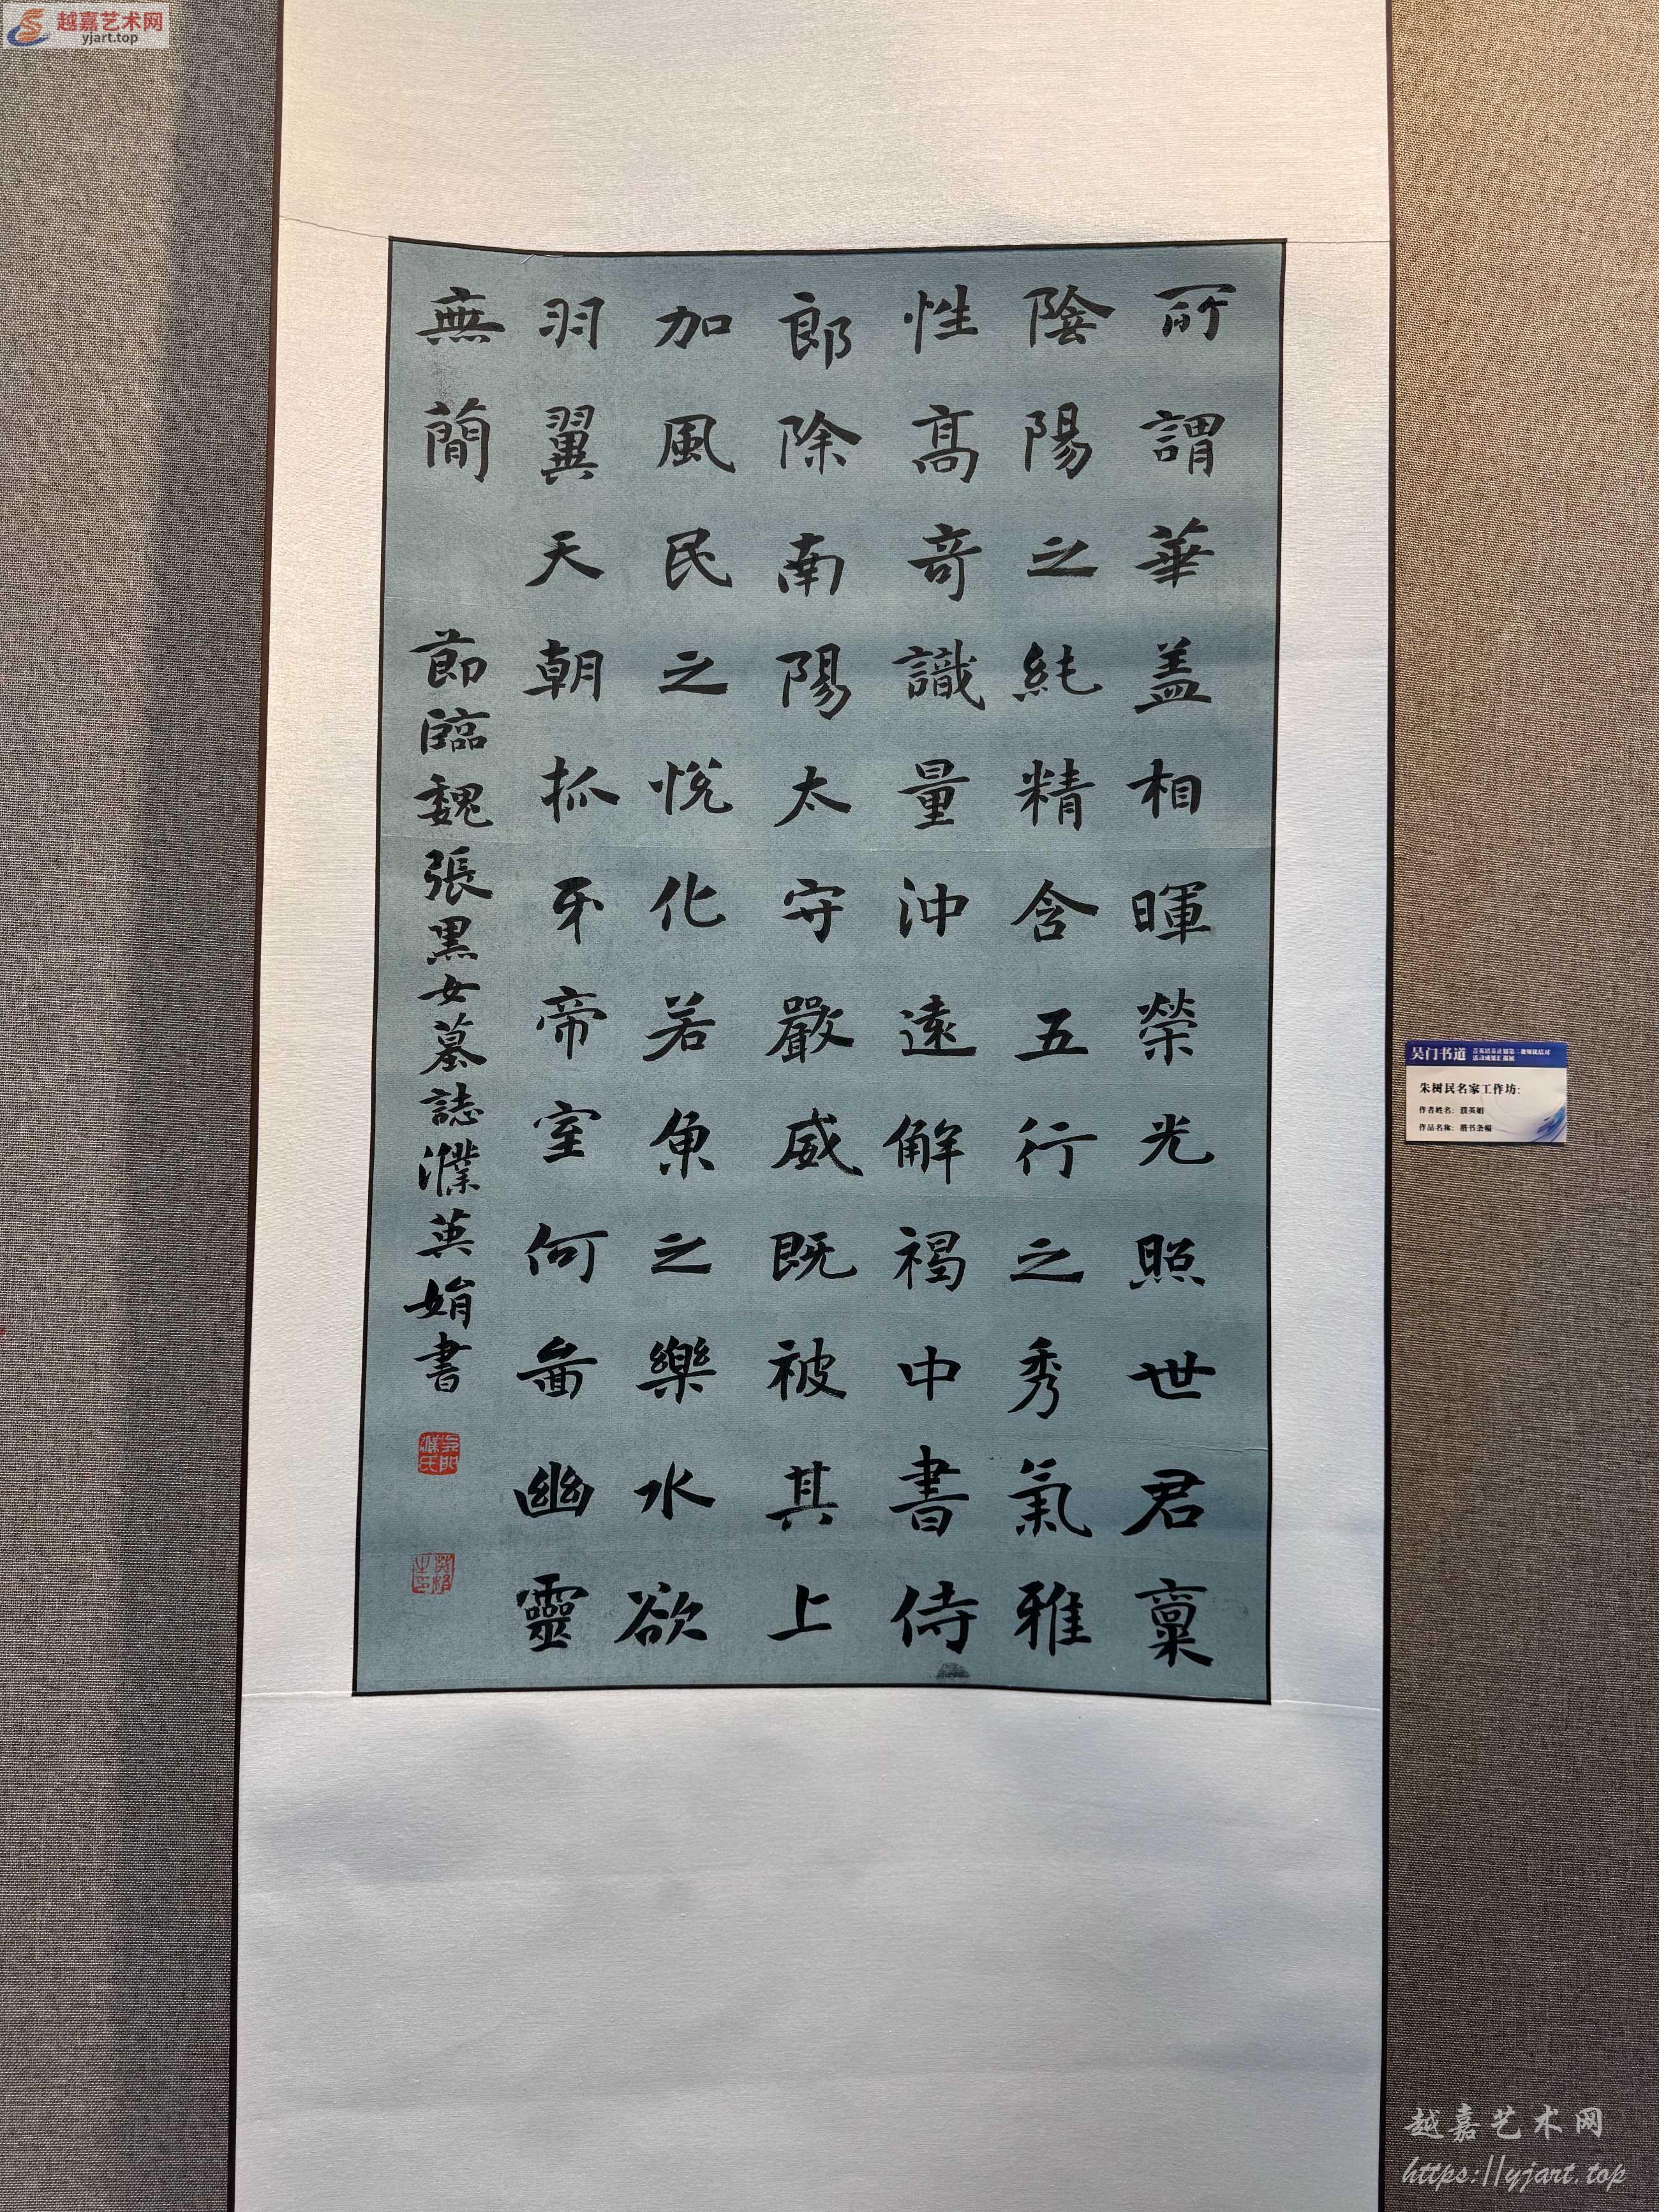 越嘉艺术网
yjart.top
所謂華盖相暉榮光照世君稟
陰陽之純精含五行之秀氣雅
性高奇識量沖遠解褐中書侍
郎除南陽太守嚴威既被其上
加風民之悅化若魚之樂水欲
羽翼天朝抓牙帝室何啚幽靈
無簡
節臨魏張黑女墓誌濮英娟書
吴门书道
朱树民名家工作坊:
作者姓名: 濮英娟
作品名称: 楷书条幅
越嘉艺术网
https://yjart.top